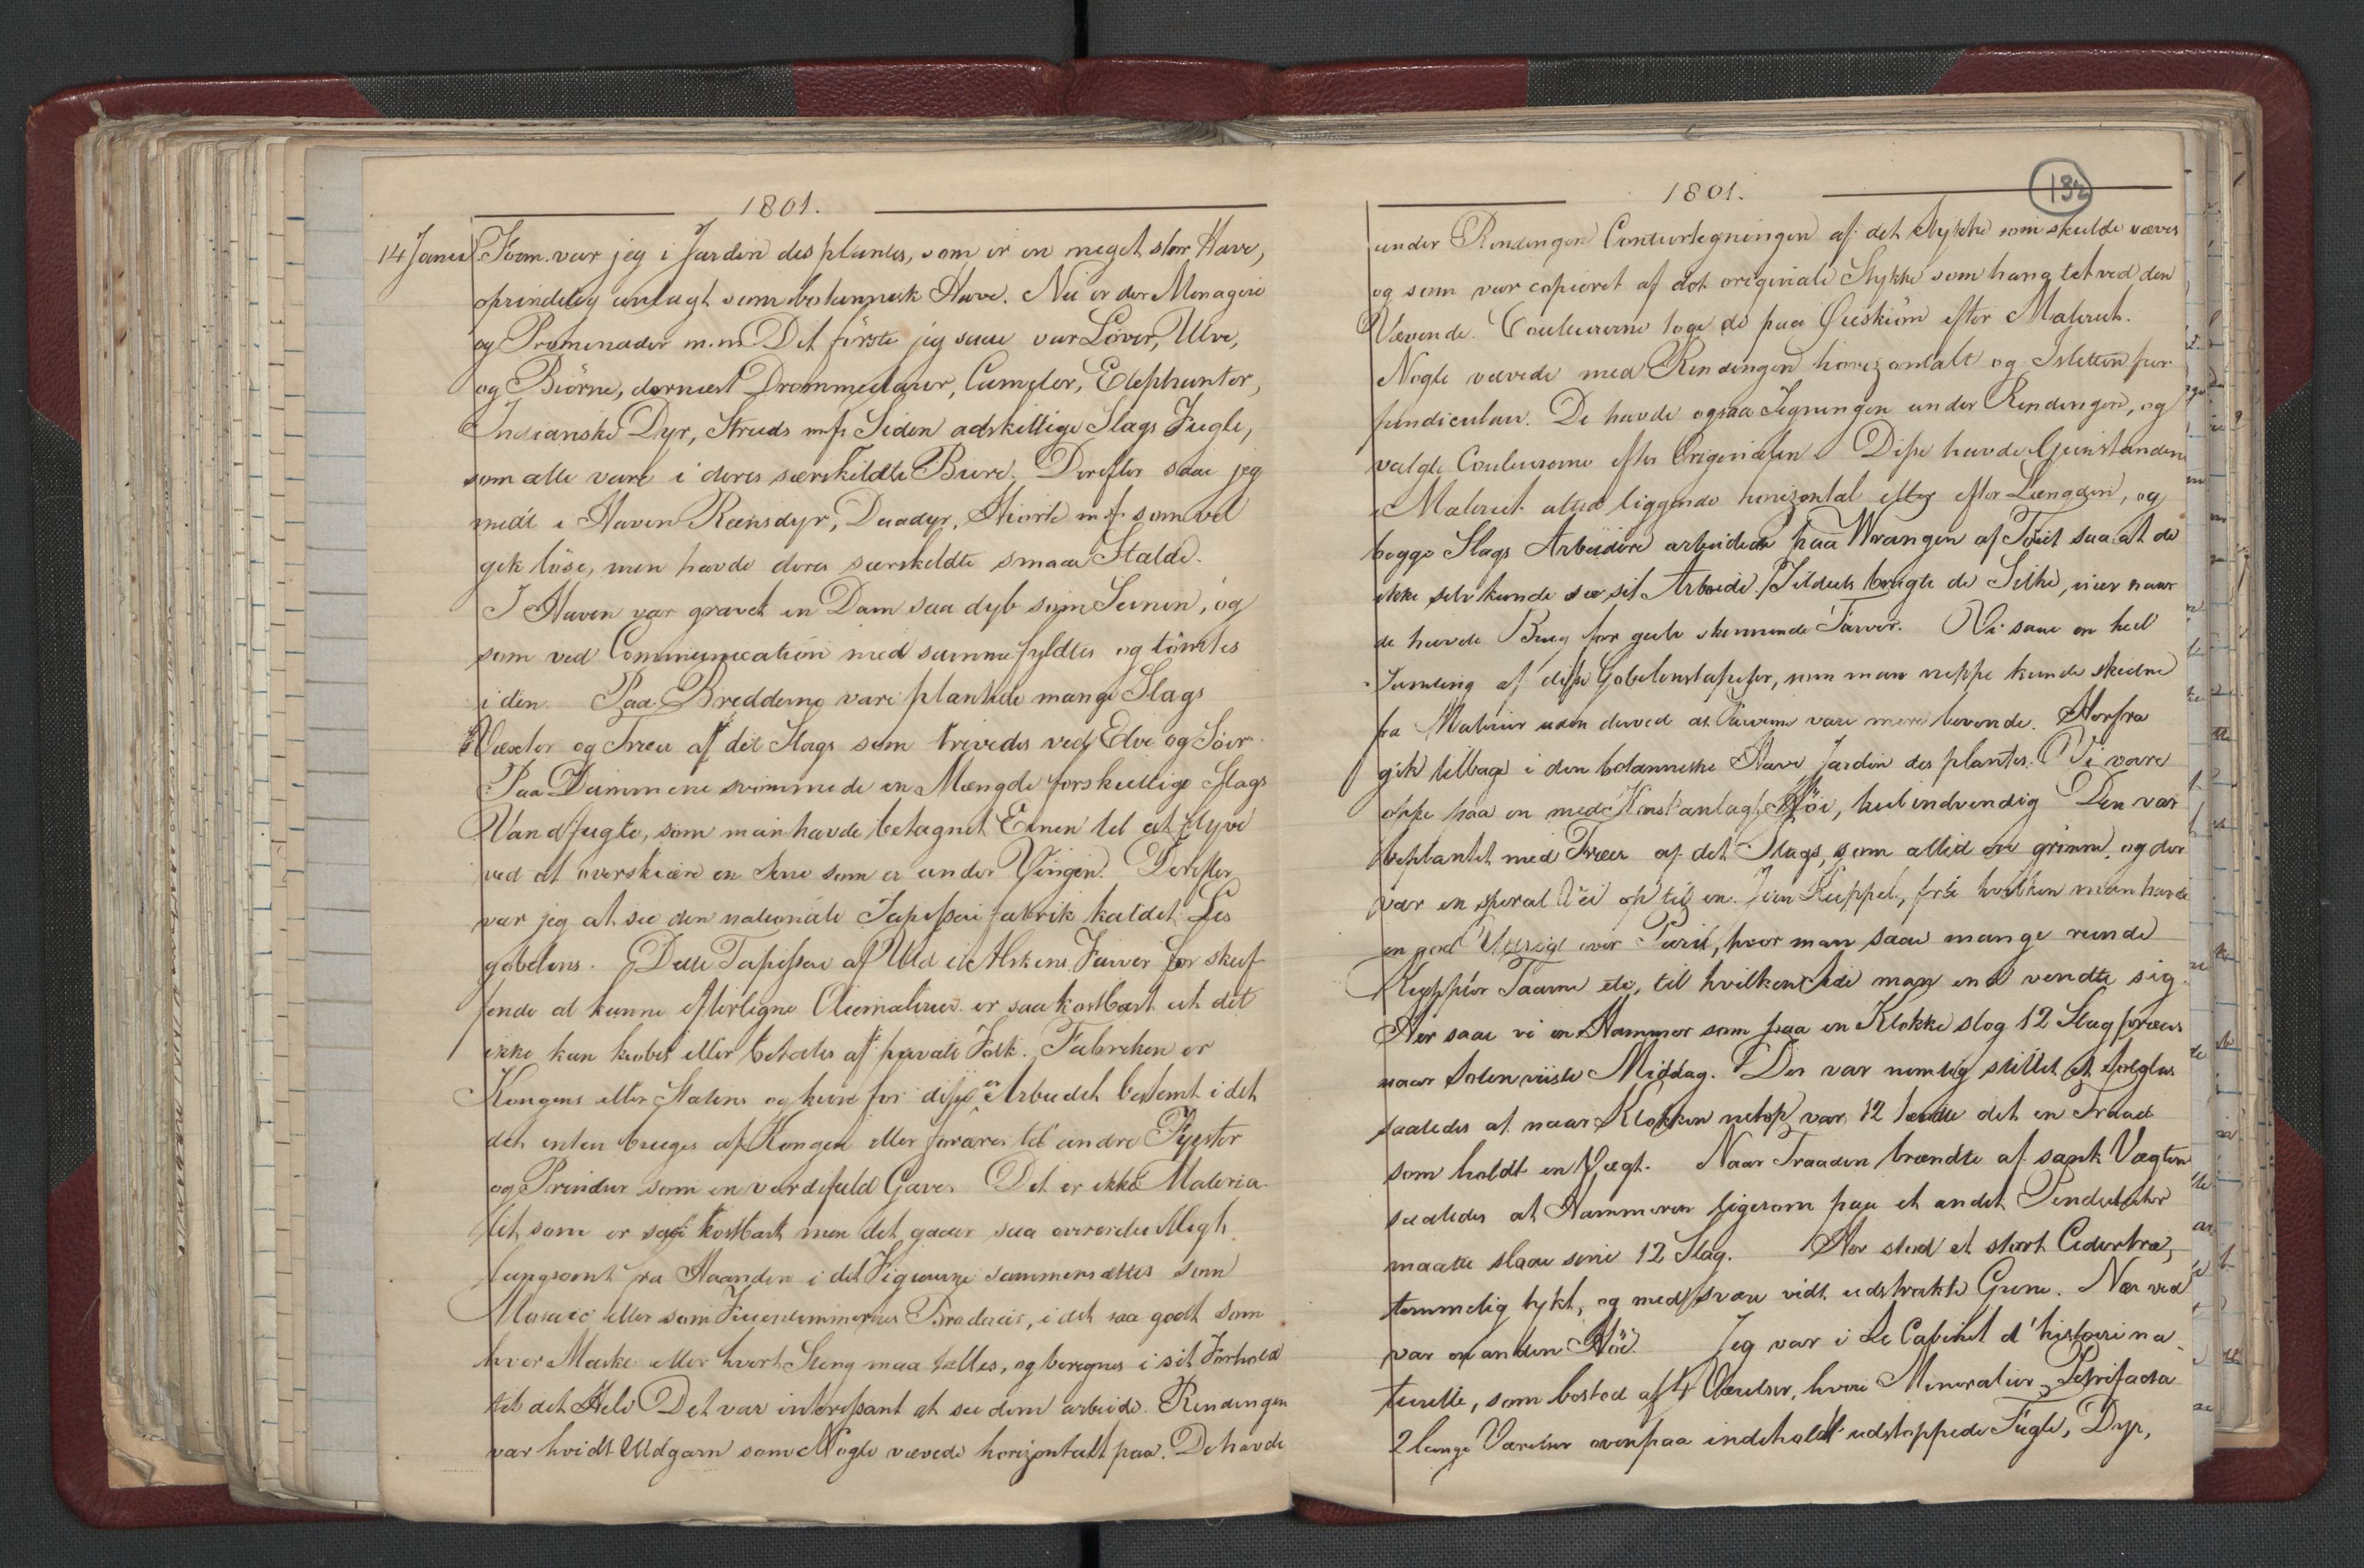 1801.
14 Janu. Form. var jeg i Jardin des plantes, som er en meget stor Have,
oprindelig anlagt som botannisk Have. Nu er der Menageri
og Promenader m.m. Det förste jeg saae var Löver, Ulve,
og Biörne, dernæst Drommedarer, Cameler, Elephanter,
Indianske Dyr, Struds m.fl. Siden adskillige Slags Fugle,
som alle vare i deres særskildte Bure. Derefter saae jeg
midt i Haven Reensdyr, Daadyr, Hiorte m.fl. som vel
gik löse, men havde deres særskildte smaae Stalde.
I Haven var gravet en Dam saa dyb som Seinen, og
som ved Communication med samme fyldtes og tömtes
i den. Paa Bredderne vare plantede mange Slags
Væxter og Træer af det Slags som trivedes ved Elve og Söer
Paa Dammene svömmede en Mængde forskiellige Slags
Vandfugle, som man havde betagnet Evnen til at flyve
ved at overskiære en Sene som er under Vingen. Derefter
var jeg at see den nationale Tapisseri fabrik kaldet Les
gobelins. Dette Tapisseri af Uld i Alskens Farver for skuf
fende at kunne efterligne Oliemalerier er saa kostbart at det
ikke kan kiøbes eller betales af private Folk. Fabriken er
Kongens eller Statens og kun for disse er Arbeidet bestemt i det
det enten bruges af Kongen eller foræres til andre Fyrster
og Prindser som en værdifuld Gave. Det er ikke Materia-
let som er saa kostbart men det gaaer saa overordentligt
langsomt fra Haanden i det Figurerne sammensættes som
Mosaic eller som Fruentimmernes Broderier, i det saa godt som
hver Maske eller hvert Sting maa tælles, og beregnes i sit Forhold
til det Hele Det var interessant at see dem arbeide. Rendingen
var hvidt Uldgarn som Nogle vævede horizontalt paa. De havde
1801.
132
under Rendingen Conturtegningen af det Stykke som skulde væves
og som var copieret af det originale Stykke som hang tet ved den
Vævende. Couleurerne toge de paa Øieskiön efter Maleriet.
Nogle vævede med Rendingen horizontalt og Isletten per
pendiculair. De havde ogsaa Tegningen under Rendingen, og
valgte Couleurerne efter Originalen. Disse havde Gienstanden
i Maleriet altid liggende horizontal eller efter Længden, og
begge Slags Arbeidere arbeidede paa Vrangen af Töiet saa at de
ikke selv kunde see sit Arbeide. Tildeels brugte de Silke, især naar
de havde Brug for gule skinnende Farver. Vi saae en heel
Samling af disse Gobelinstapeter, som man neppe kunde skielne
fra Malerier uden derved at Farverne vare mere levende. Herfra
gik tilbage i den botanniske Have Jardin des plantes. Vi vare
oppe paa en med Konst anlagt Höi, huul indvendig Den var
beplantet med Træer af det Slags, som altid er grönne, og der
var en spiral Vei op til en Kuppel, fra hvilken man havde
en god Udsigt over Paris, hvor man saae mange runde
Kupler Taarne etc, til hvilken Side man end vendte sig.
Her saae vi en Hammer som paa en Klokke slog 12 Slag præcis
naar Solen viiste Middag. Der var nemlig stillet et Solglas
saaledes at naar Klokken netop var 12 tændte det en Traad
som holdt en Vægt. Naar Traaden brændte af sank Vægten
saaledes at Hammeren ligesom paa et andet Penduluhr
maatte slaae sine 12 Slag. Her stod et stort Cedertræ,
temmelig tykt, og med svære vidt udstrakte Grene. Nær ved
var en anden Höi. Jeg var i Le Cabinet d'histoire na
turelle, som bestod af 4 Værelser, hvori Mineralier, Petrifacta
2 lange Værelser ovenpaa indeholdt udstoppede Fugle, Dyr,